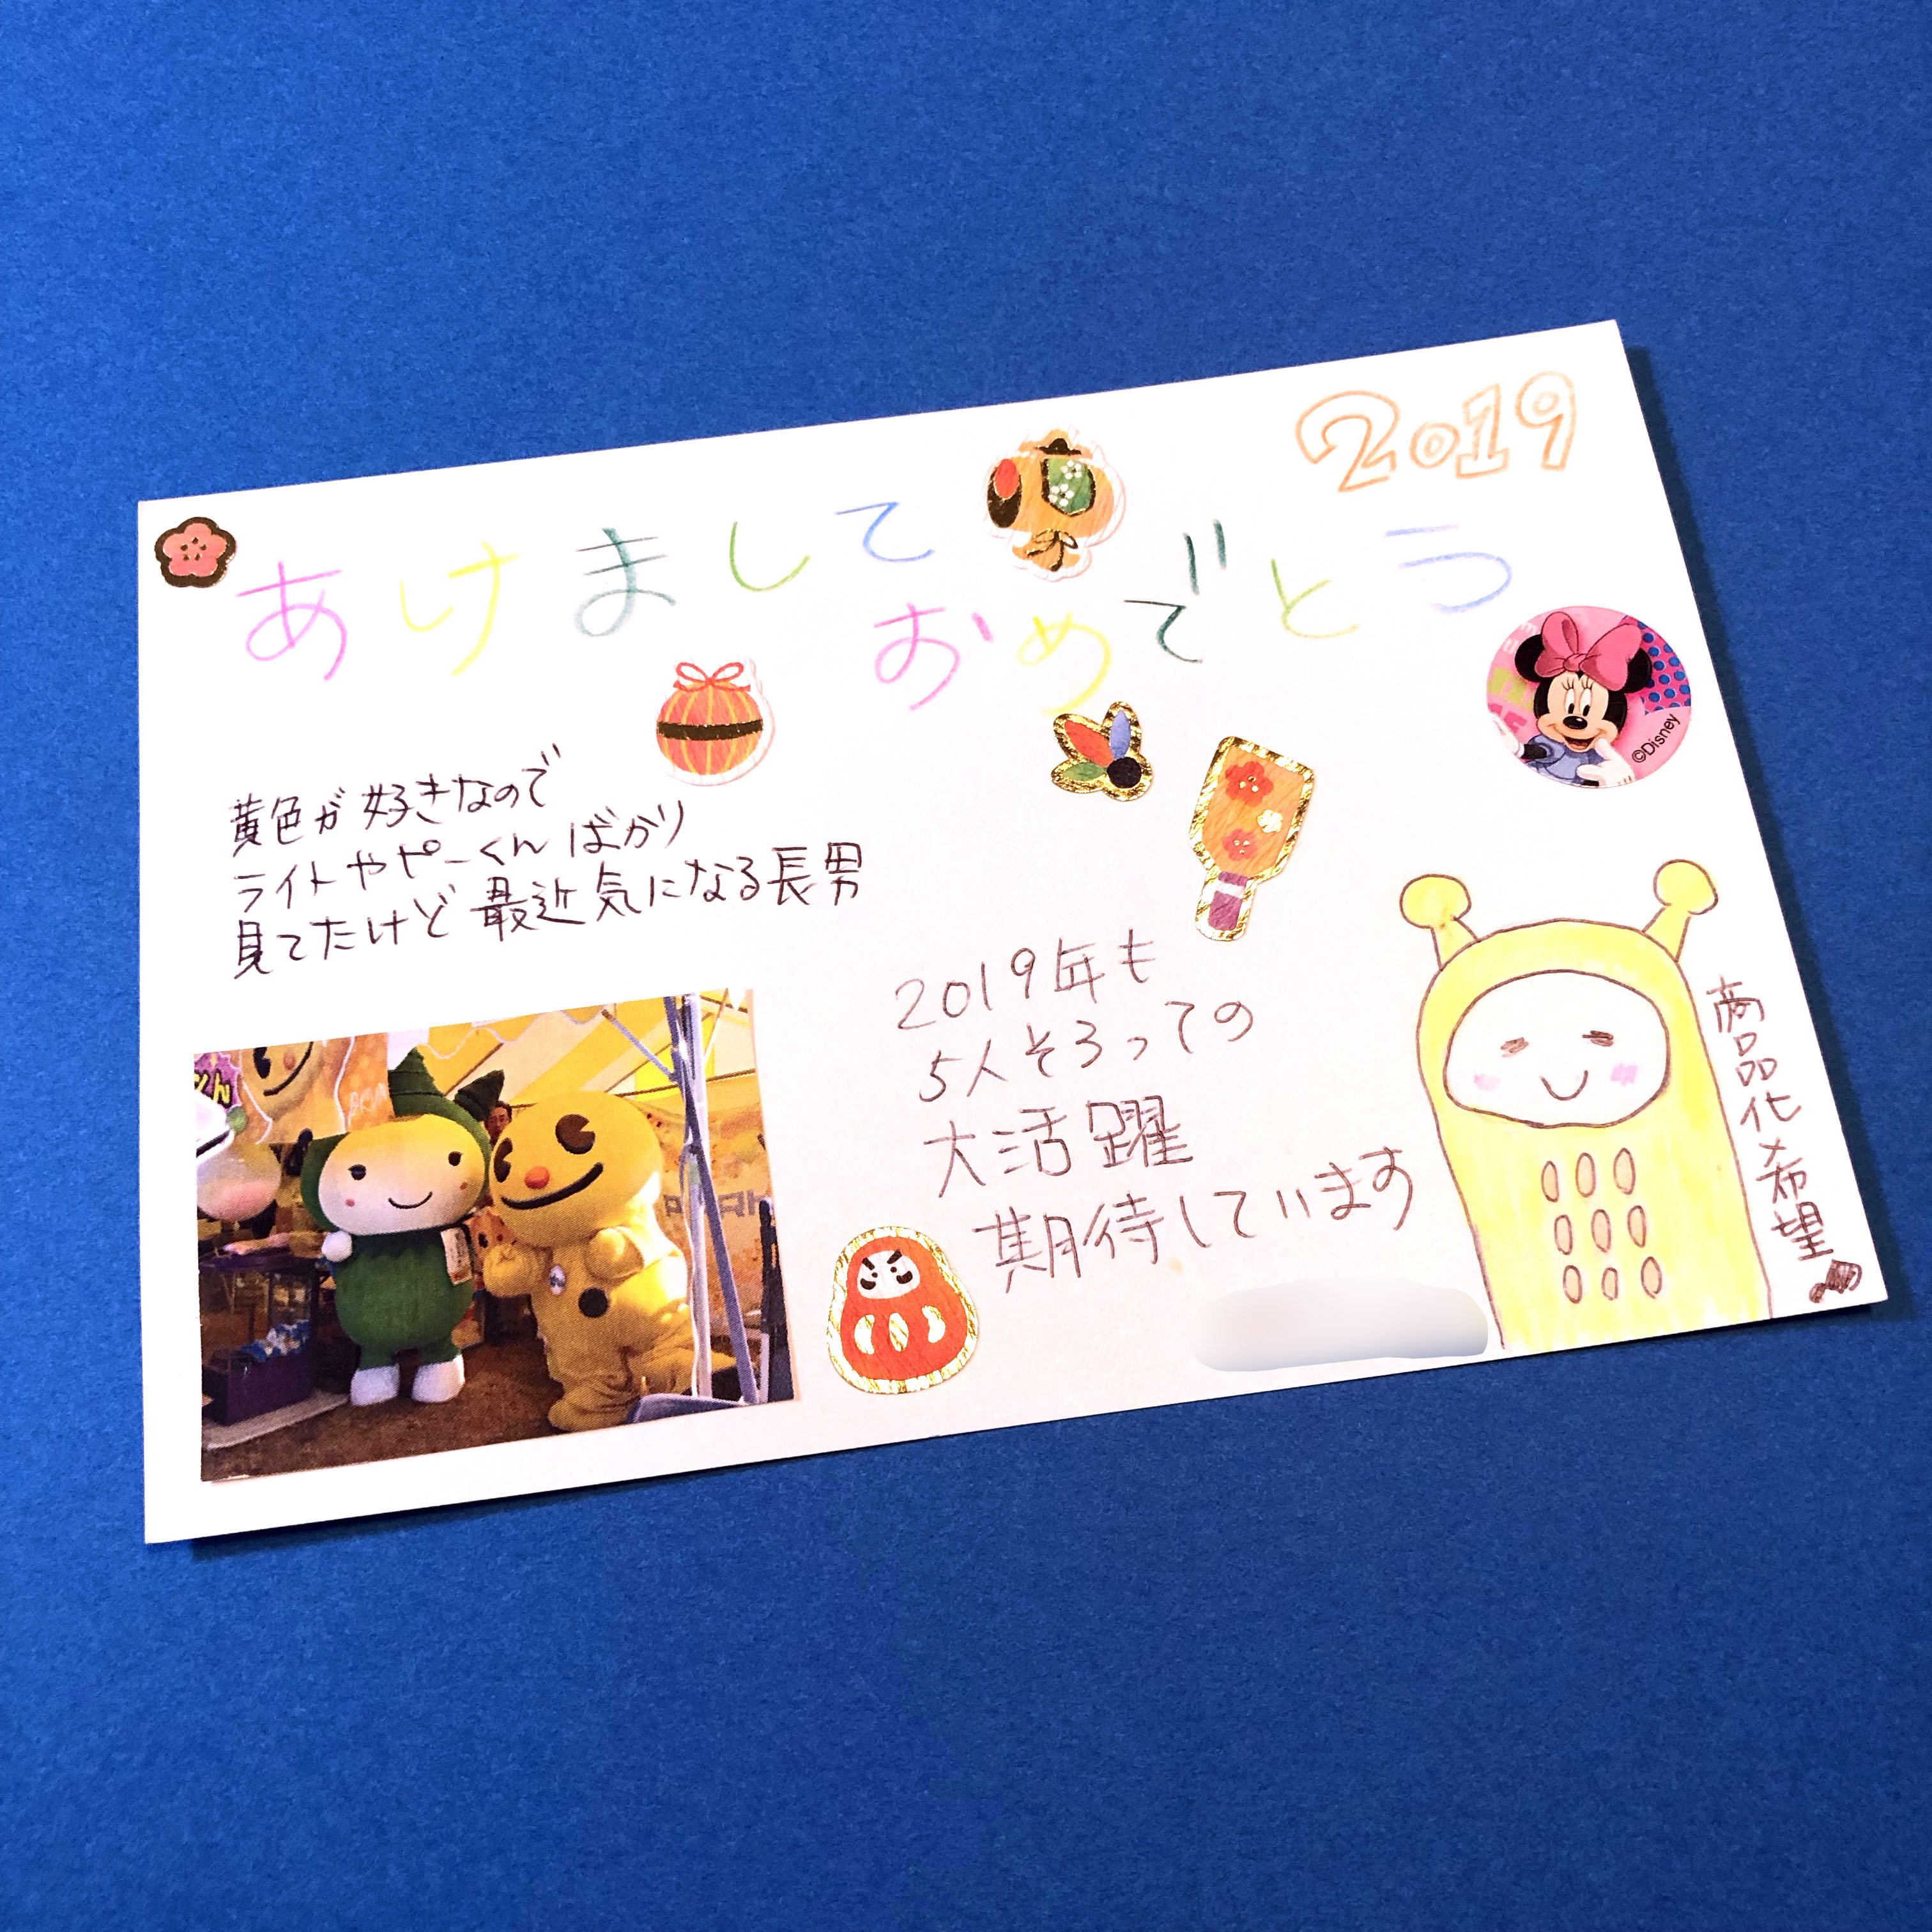 2019
あけまして
おめでとう
©Disney
黄色が好きなので
ライトやぺーくんばかり
見てたけど最近気になる長男
2019年も
5人そろっての
大活躍
期待しています
商品化希望
くん